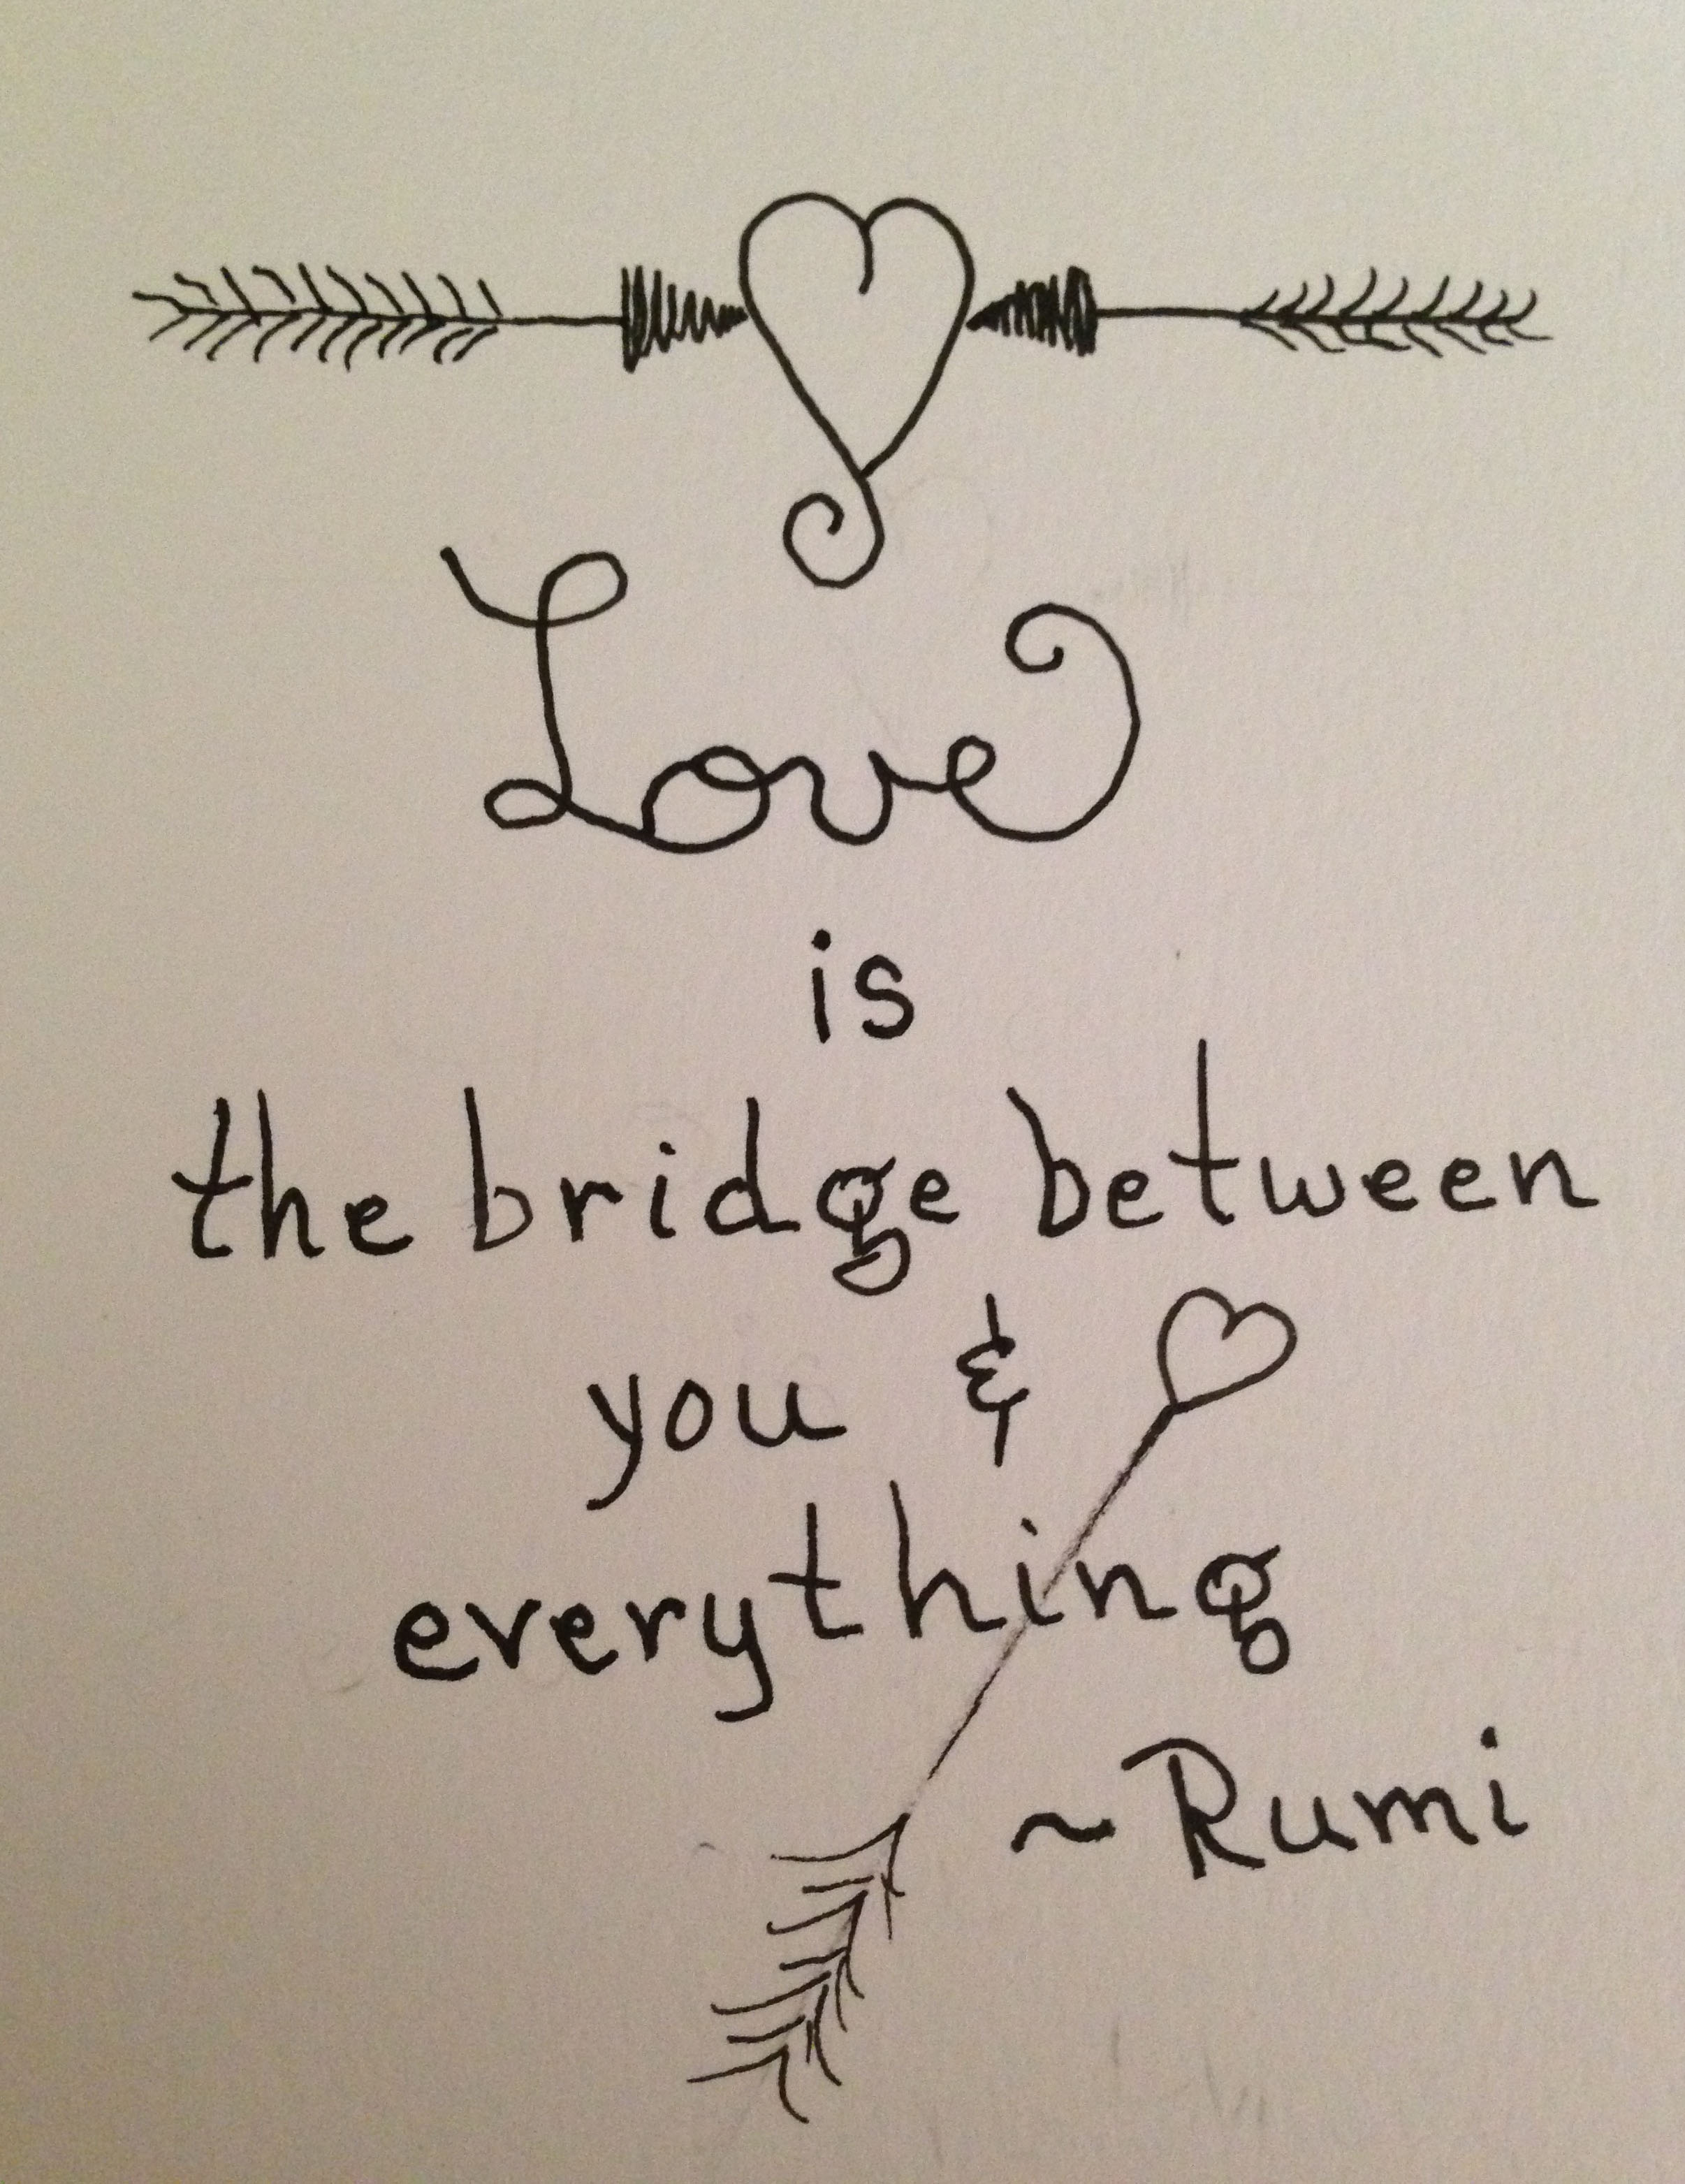 Love
is
the bridge between
you &
everything
~Rumi